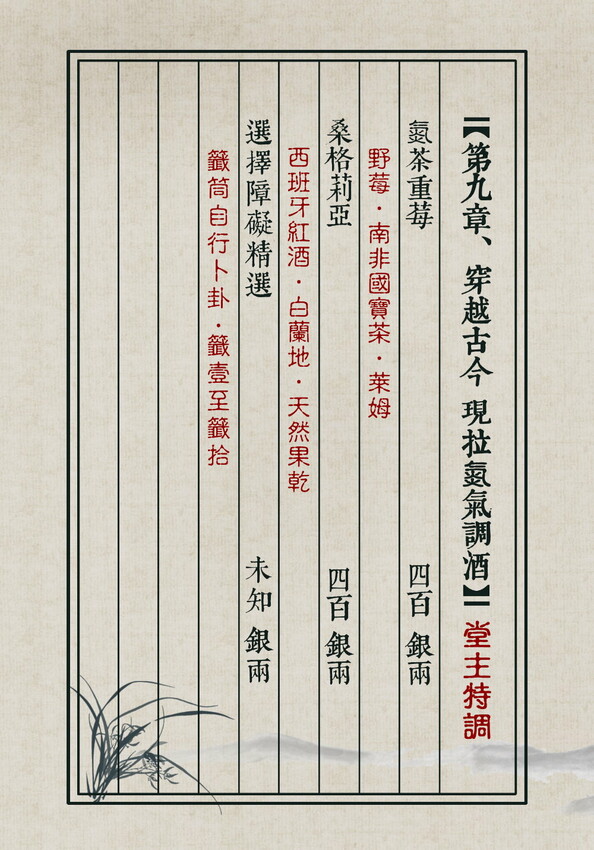 【第九章、穿越古今 現拉氮氣調酒】堂主特調
氮茶重莓 四百 銀兩
野莓·南非國寶茶·萊姆
桑格莉亞 四百 銀兩
西班牙紅酒·白蘭地·天然果乾
選擇障礙精選 未知 銀兩
籤筒自行卜卦·籤壹至籤拾